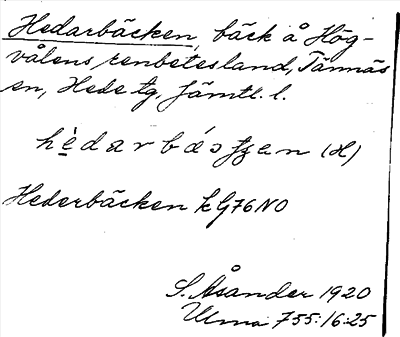 Hedarbäcken, bäck å Hög-
vålens renbetesland, Tännäs
sn, Hede tg, Jämtl. l.
Hederbäcken k G76NO
S. Åsander 1920
Ulma 755:16:25